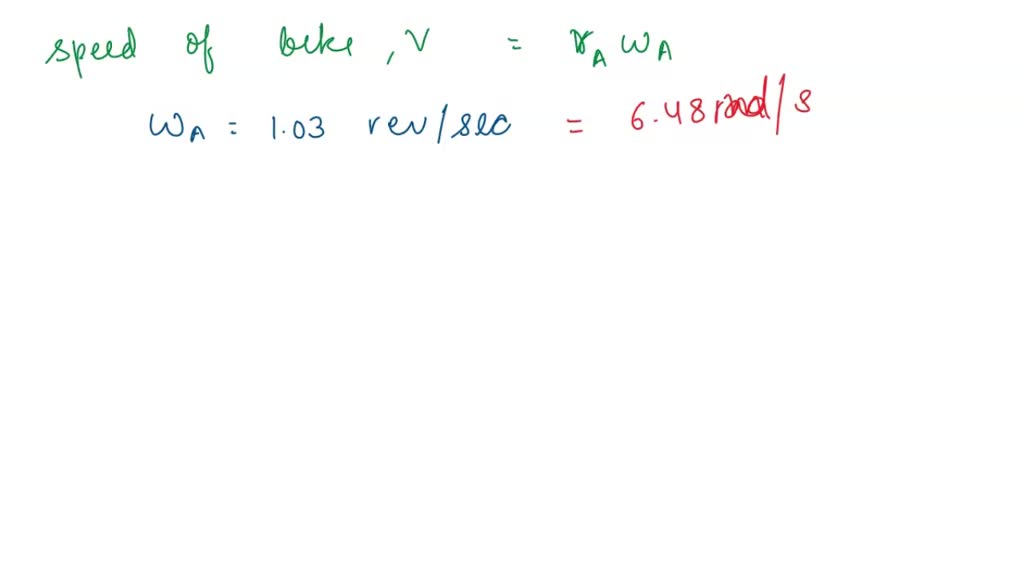 speed of bike, V = r_A ω_A
ω_A = 1.03 rev/sec = 6.48 rad/s